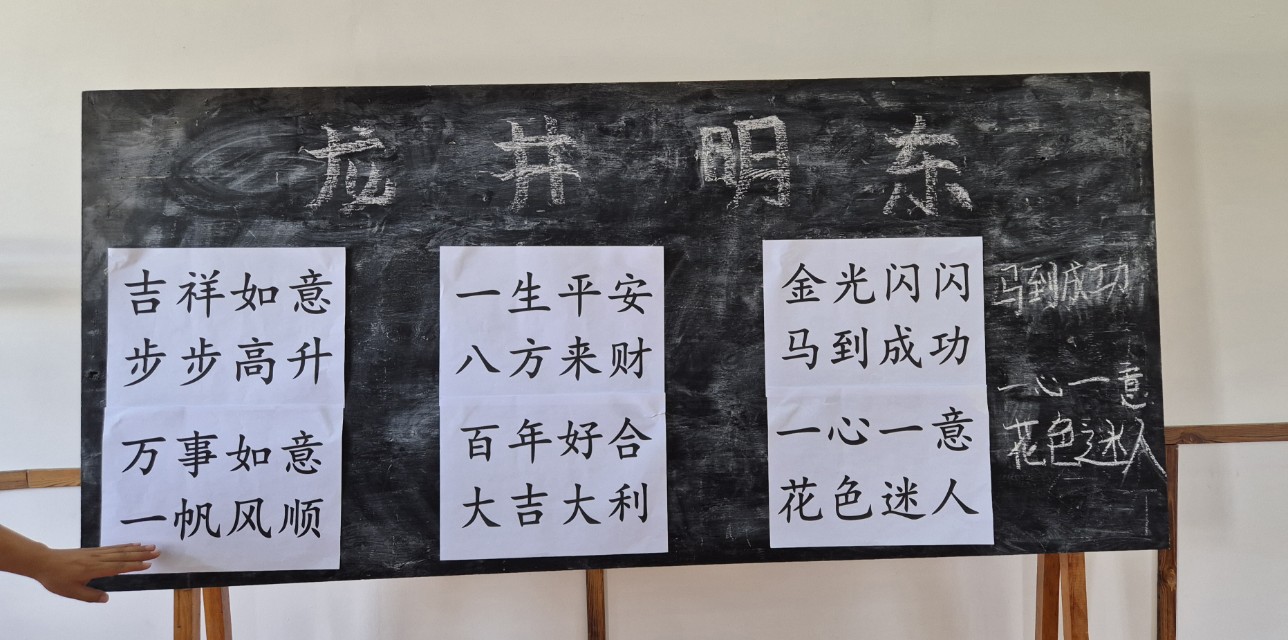 龙井明东
吉祥如意
步步高升
万事如意
一帆风顺
一生平安
八方来财
百年好合
大吉大利
金光闪闪
马到成功
一心一意
花色迷人
马到成功
一心一意
花色迷人